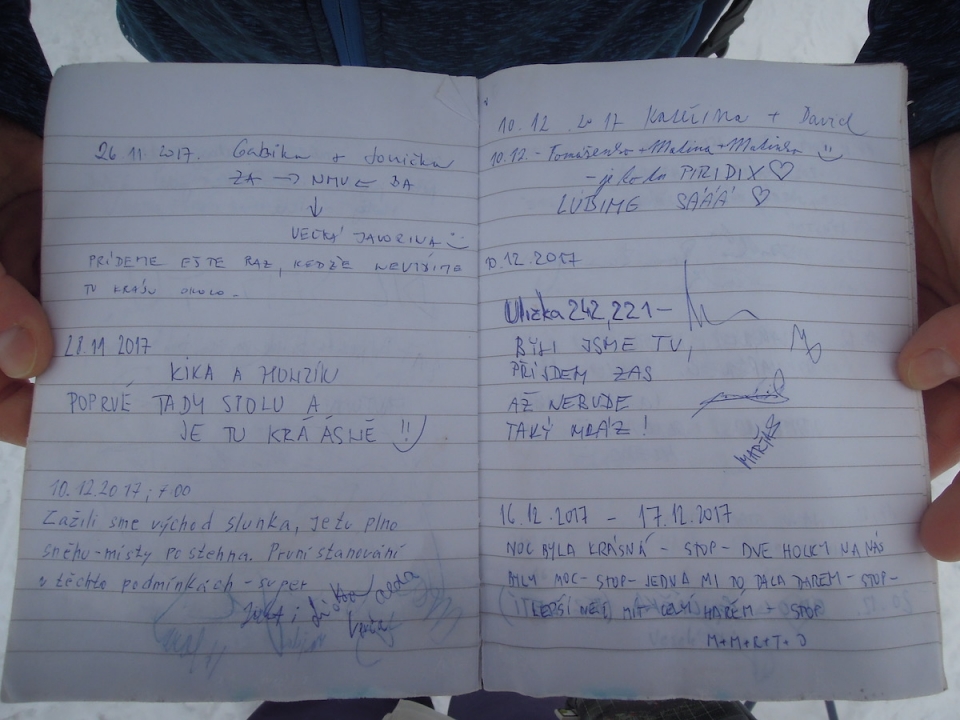 26.11.2017. Gabika + Jonička
ZA → NMV ← BA
↓
VEĽKÁ JAVORINA
PRÍDEME EŠTE RAZ, KEDŽE NEVIDÍME
TU KRÁSU OKOLO.
28.11 2017
KIKA A HONZÍK
POPRVÉ TADY SPOLU A
JE TU KRÁÁSNĚ !!
10.12.2017, 7:00
Zažili sme východ slunka, je tu plno
sněhu - místy po stehna. První stanování
v těchto podmínkách - super
10.12.2017 Kateřina + David
10.12. - Tomášenko + Malina + Malinka
- je to to PIRIDIX ♡
ĽÚBIME SÁÁÁ ♡
10.12.2017
Ulizka 242, 221 -
BYLI JSME TU,
PŘIJDEM ZAS
AŽ NEBUDE
TAKÝ MRÁZ !
MARŤAS
16.12.2017 - 17.12.2017
NOC BYLA KRÁSNÁ - STOP - DVĚ HOLKY NA NÁS
BYLY MOC - STOP - JEDNA MI DO DALA DAREM - STOP -
LEPŠÍ NEŽ MÍT CELÝ HARÉM - STOP
M+M+R+T+J